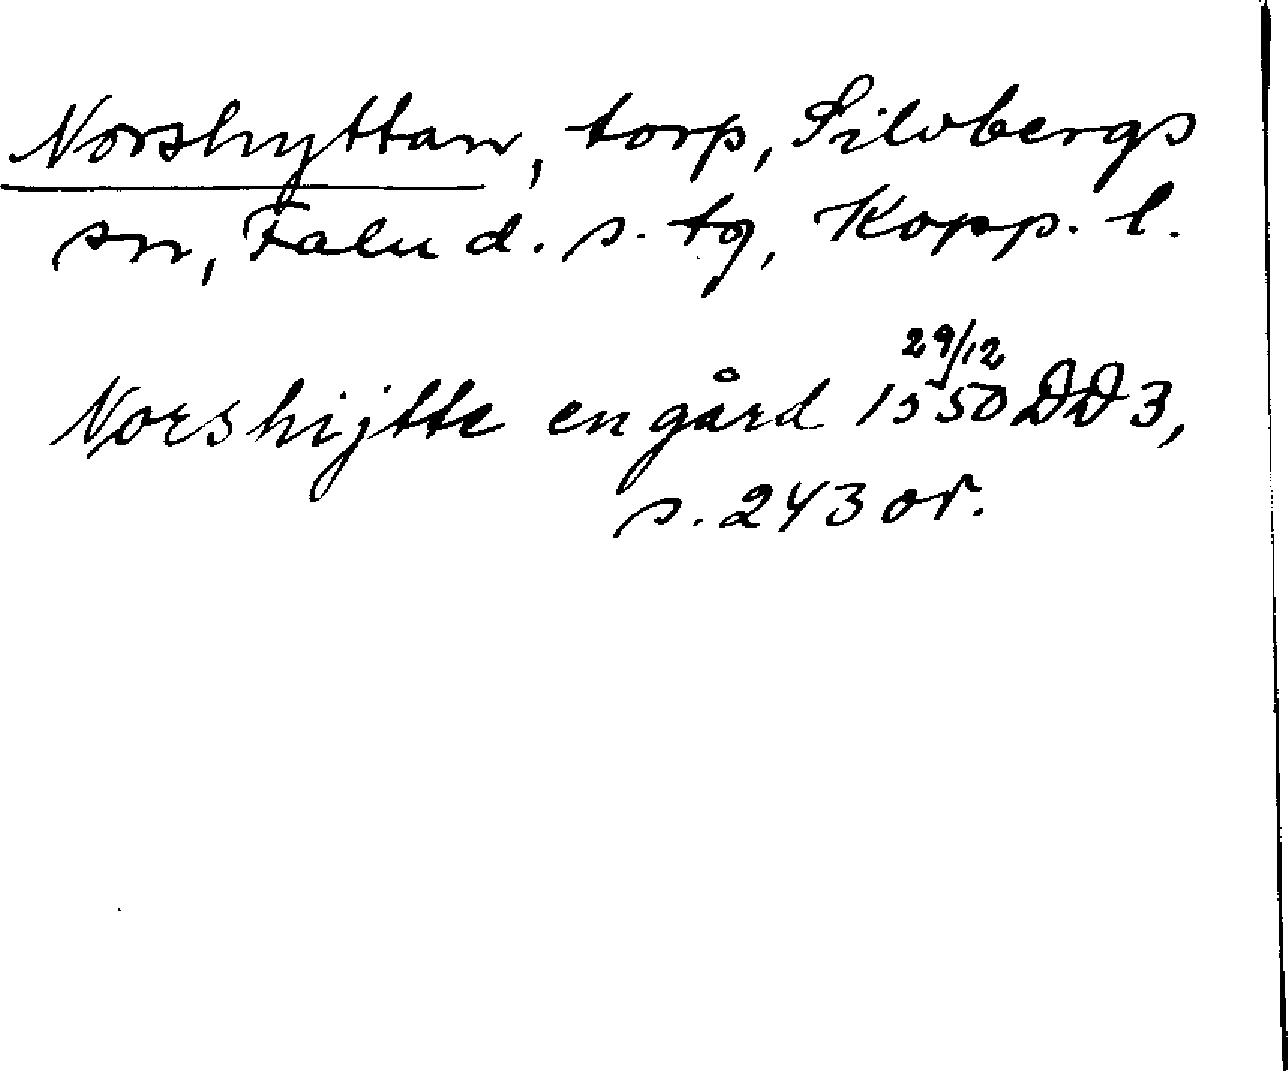 Norshyttan, torp, Silvbergs
sn, Falu d. s. tg, Kopp. l.
Norshijtte en gård 29/12 1550 DD 3,
s. 243 or.